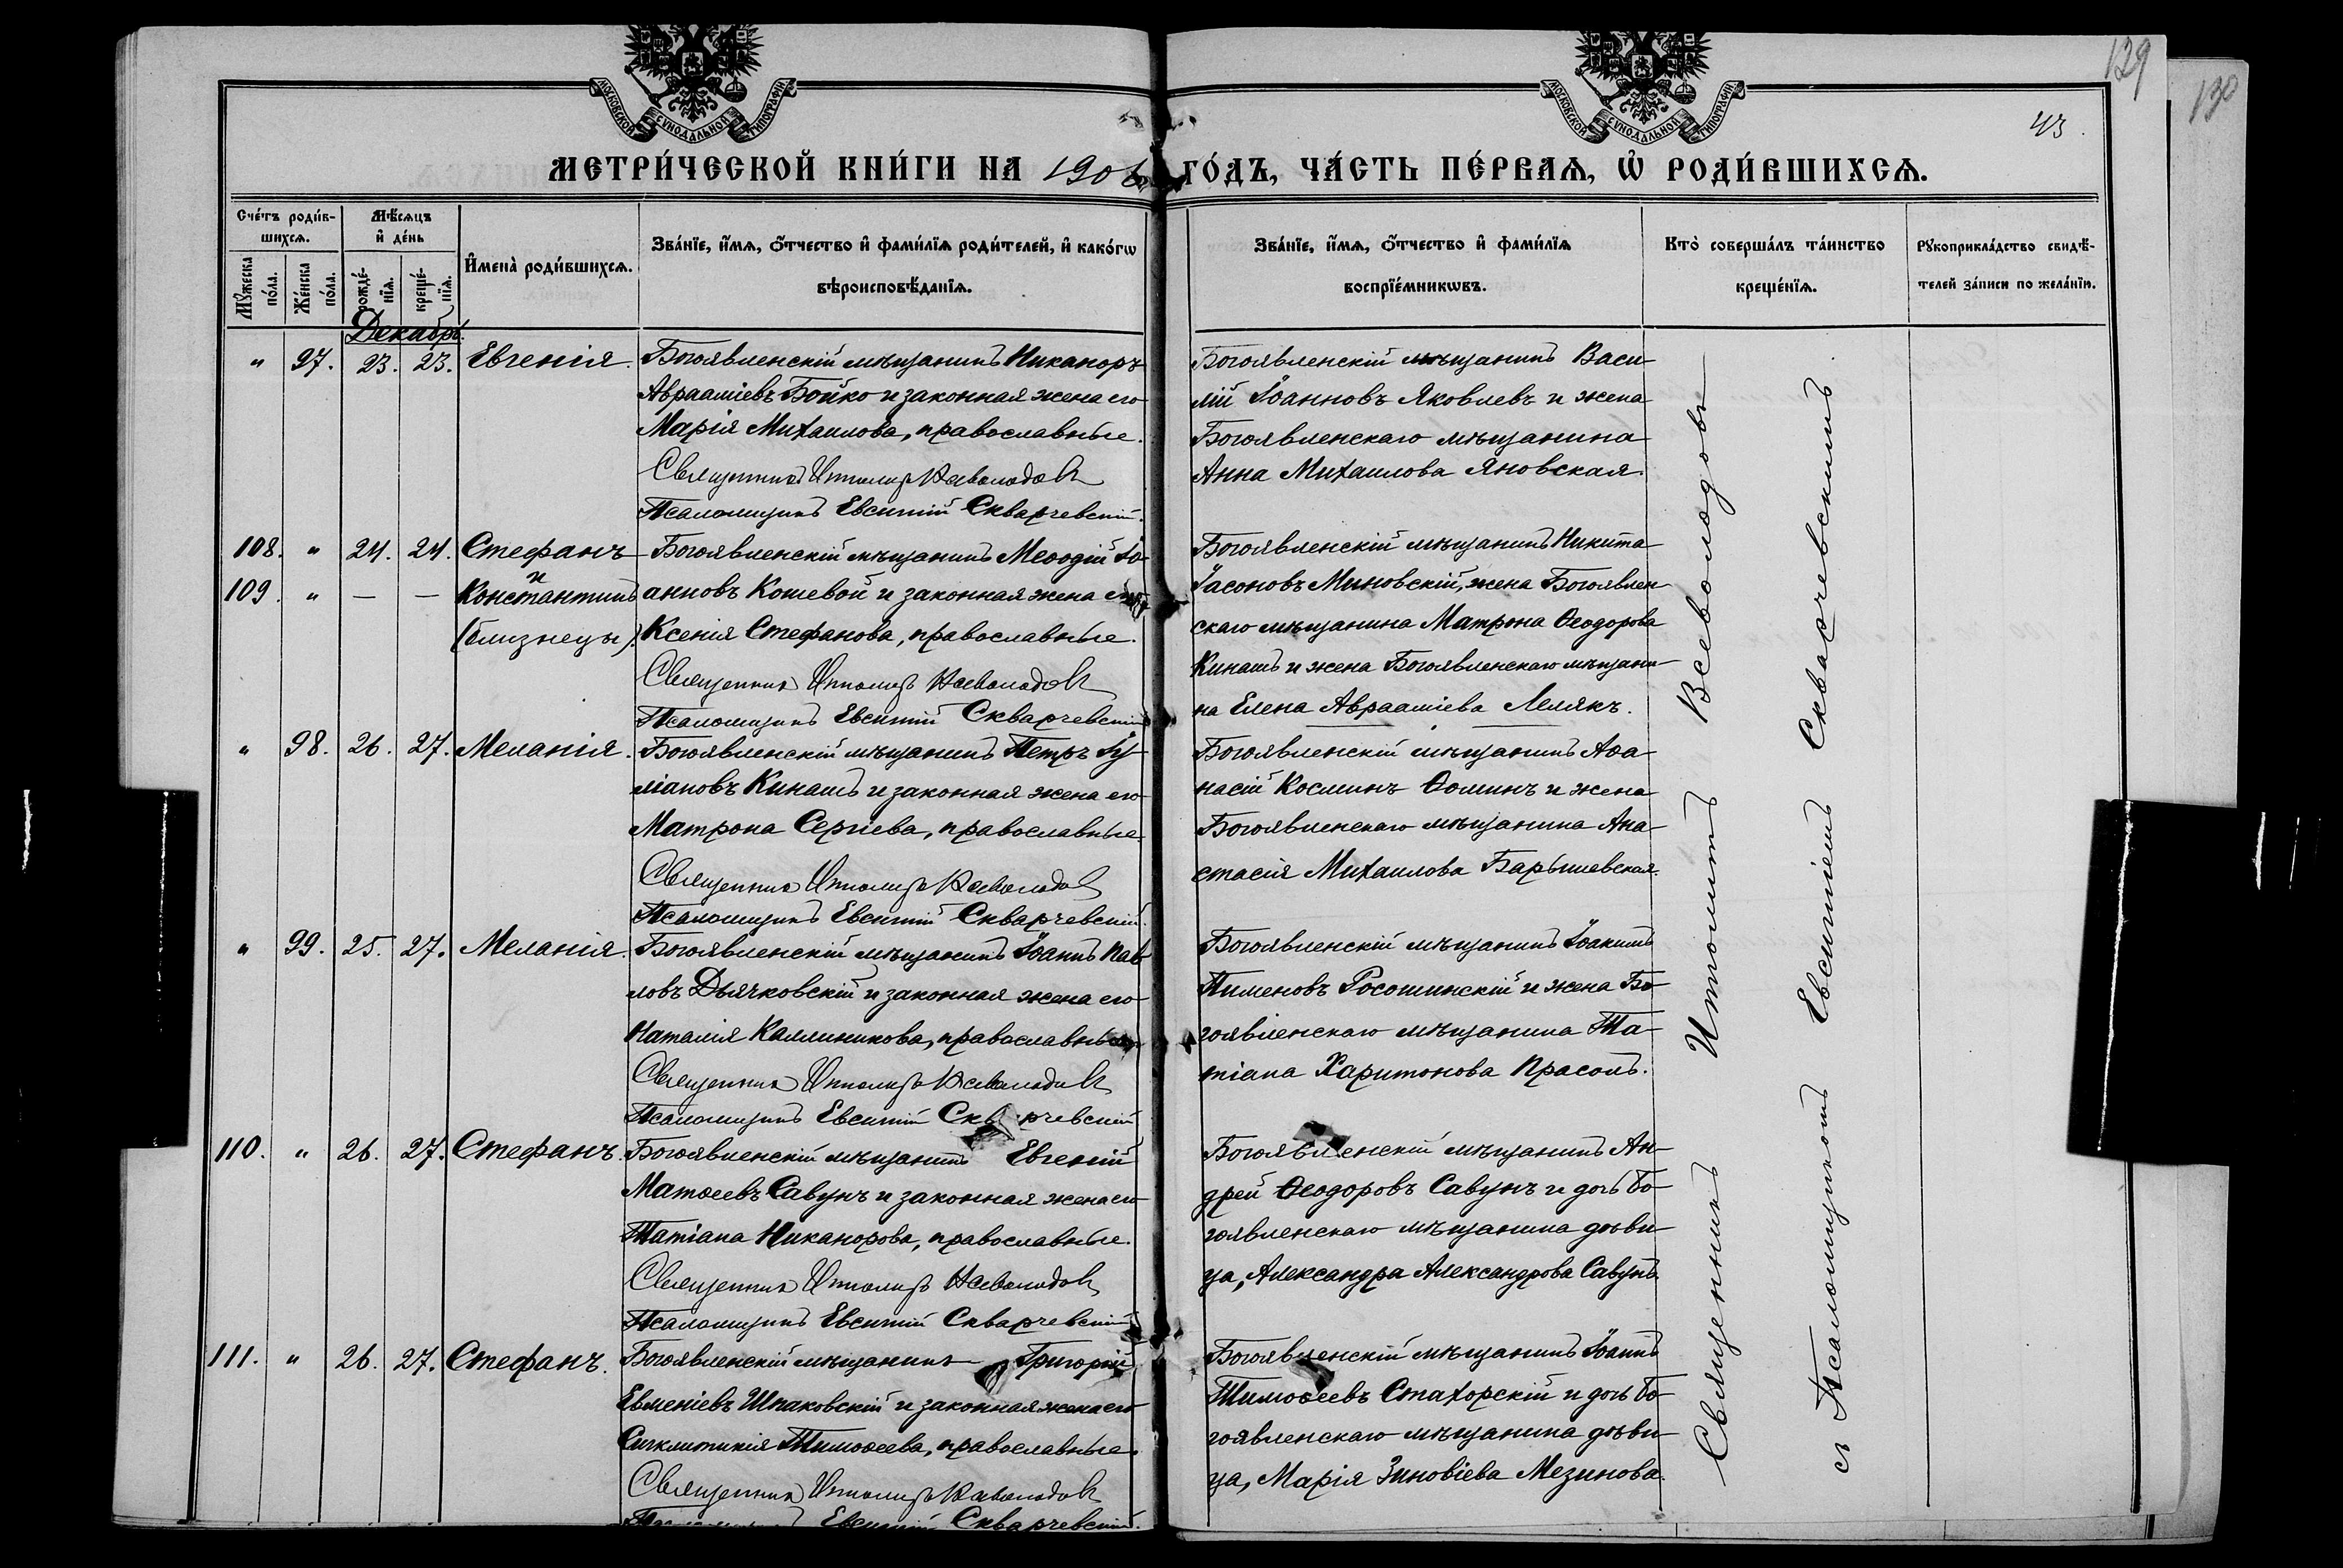 129
130
43.
МОСКОВСКОЙ СѴНОДАЛЬНОЙ ТИПОГРАФІИ
МОСКОВСКОЙ СѴНОДАЛЬНОЙ ТИПОГРАФІИ
МЕТРИ́ЧЕСКОЙ КНИ́ГИ НА 1906 ГО́ДЪ, ЧА́СТЬ ПЕ́РВАѦ, Ѡ҆ РОДИ́ВШИХСѦ.
Сче́тъ роди́в-
шихсѧ.
Мѣ́сѧцъ
и҆ де́нь
Мꙋ́жеска по́ла.
Же́нска по́ла.
рожде́-
нїѧ.
креще́-
нїѧ.
И҆мена̀ роди́вшихсѧ.
Зва́нїе, и҆́мѧ, ѻ҆́тчество и҆ фами́лїѧ роди́телей, и҆ како́гѡ
вѣроисповѣ́данїѧ.
Зва́нїе, и҆́мѧ, ѻ҆́тчество и҆ фами́лїѧ
воспрїе́мникѡвъ.
Кто̀ соверша́лъ та́инство
креще́нїѧ.
Рꙋкоприкла́дство свидѣ́-
телей за́писи по жела́нїю.
Декабрь.
" 97. 23. 23. Евгенія. Богоявленскій мѣщанинъ Никаноръ
Авраамiевъ Бойко и законная жена его
Марія Михаилова, православные.
Священникъ Ипполитъ Всеволодовъ
Псаломщикъ Евсигній Скварчевскій.
Богоявленскій мѣщанинъ Васи-
лій Іоанновъ Яковлевъ и жена
Богоявленскаго мѣщанина
Анна Михаилова Яновская.
108. " 24. 24. Стефанъ Богоявленскій мѣщанинъ Меѳодій Іо-
и
109. " — — Константинъ анновъ Кошевой и законная жена его
(близнецы). Ксенія Стефанова, православные.
Священникъ Ипполитъ Всеволодовъ
Псаломщикъ Евсигній Скварчевскій
Богоявленскій мѣщанинъ Никита
Іасоновъ Миновскій, жена Богоявлен-
скаго мѣщанина Матрона Ѳеодорова
Кинашъ и жена Богоявленскаго мѣщани-
на Елена Авраамiева Лелякъ.
" 98. 26. 27. Меланія. Богоявленскій мѣщанинъ Петръ Іу-
ліановъ Кинашъ и законная жена его
Матрона Сергіева, православные.
Священникъ Ипполитъ Всеволодовъ
Псаломщикъ Евсигній Скварчевскій.
Богоявленскій мѣщанинъ Аѳа-
насій Косминъ Ѳоминъ и жена
Богоявленскаго мѣщанина Ана-
стасія Михаилова Барышевская.
" 99. 25. 27. Меланія. Богоявленскій мѣщанинъ Іоаннъ Пав-
ловъ Дьячковскій и законная жена его
Наталія Каллиникова, православные
Священникъ Ипполитъ Всеволодовъ
Псаломщикъ Евсигній Скварчевскій
Богоявленскій мѣщанинъ Іоакимъ
Пименовъ Росошинскій и жена Бо-
гоявленскаго мѣщанина Та-
тіана Харитонова Прасолъ.
110. " 26. 27. Стефанъ. Богоявленскій мѣщанинъ Евгеній
Матѳеевъ Савунъ и законная жена его
Татіана Никанорова, православные.
Священникъ Ипполитъ Всеволодовъ
Псаломщикъ Евсигній Скварчевскій
Богоявленскій мѣщанинъ Ан-
дрей Ѳеодоровъ Савунъ и дочь Бо-
гоявленскаго мѣщанина дѣви-
ца, Александра Александрова Савунъ.
111. " 26. 27. Стефанъ. Богоявленскій мѣщанинъ Григорій
Евменіевъ Шпаковскій и законная жена его
Синклитикія Тимоѳеева, православные.
Священникъ Ипполитъ Всеволодовъ
Псаломщикъ Евсигній Скварчевскій.
Богоявленскій мѣщанинъ Іоаннъ
Тимоѳеевъ Стахорскій и дочь Бо-
гоявленскаго мѣщанина дѣви-
ца, Марія Зиновіева Мезинова.
Священникъ Ипполитъ Всеволодовъ
съ Псаломщикомъ Евсигніемъ Скварчевскимъ.